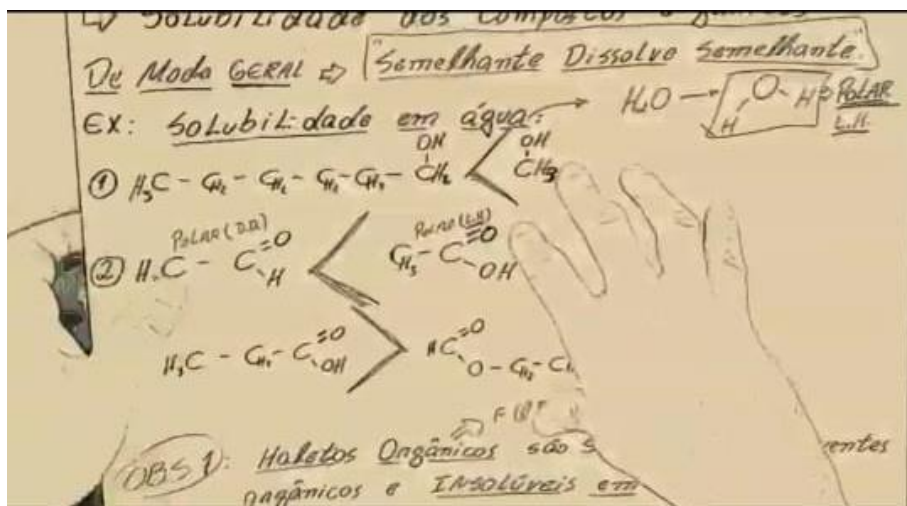 ⇨ Solubilidade dos Compostos
De Modo GERAL ⇨ "Semelhante Dissolve Semelhante."
EX: Solubilidade em água: → H2O → H O H ⇨ POLAR L.H.
① H3C - CH2 - CH2 - CH2 - CH2 - CH2 OH < OH CH3
POLAR (D.D) POLAR (L.H)
② H3C - C =O H < CH3 - C =O OH
H3C - CH2 - C =O OH > HC =O O - CH2 - CH
OBS 1: Haletos Orgânicos são S entes
orgânicos e INSOLÚVEIS em